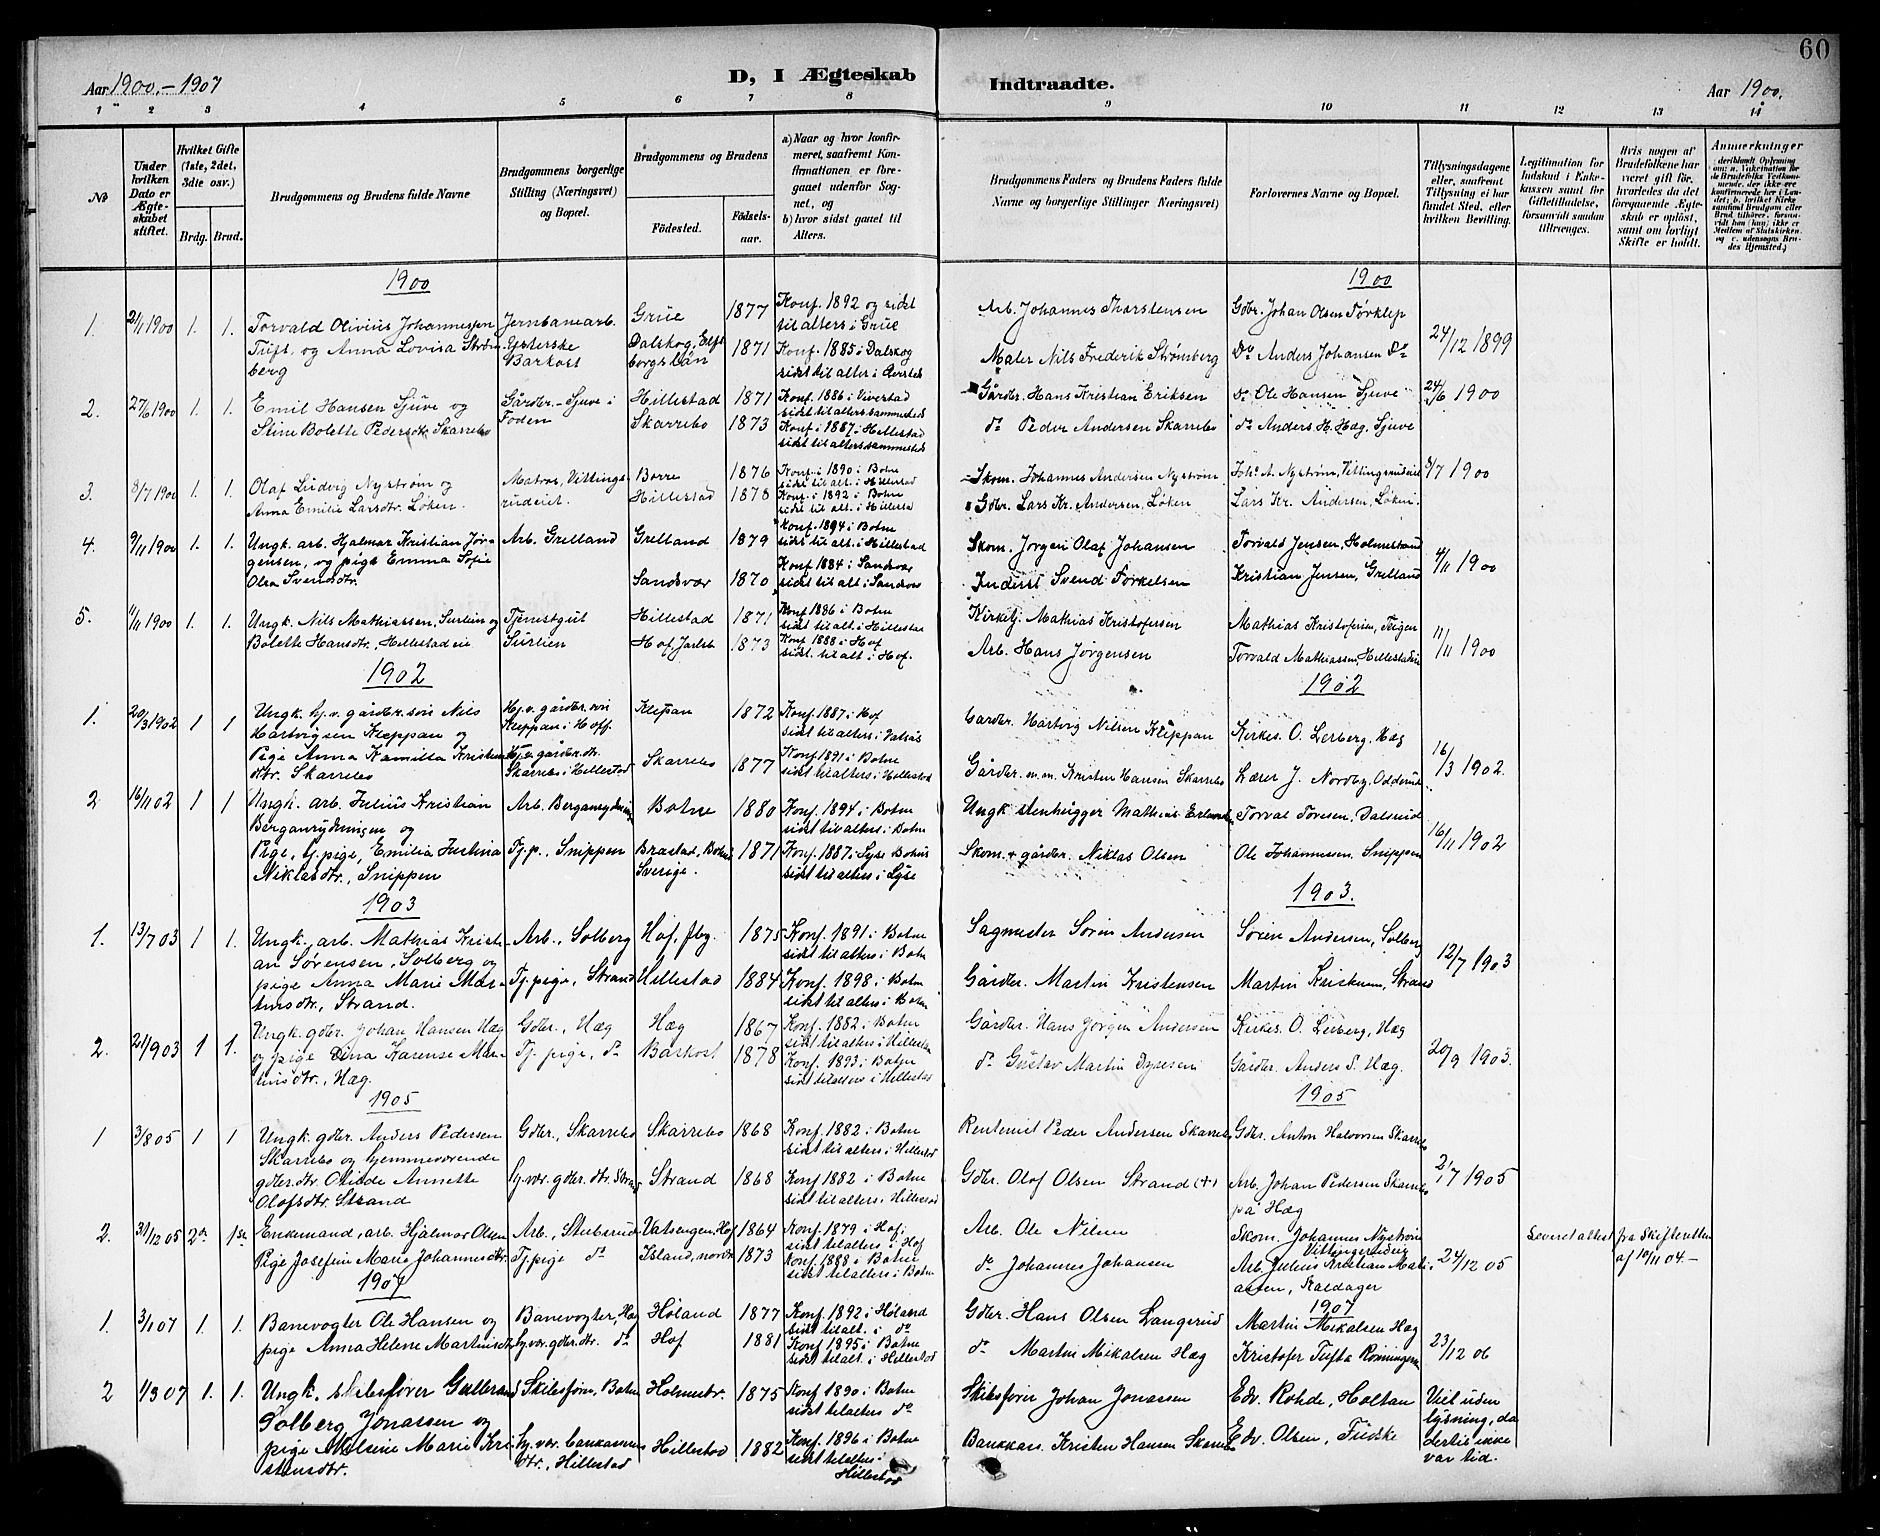 60
Aar 1900.-1907
D, I Ægteskab
Indtraadte.
Aar 1900.
1 2 3 4 5 6 7 8 9 10 11 12 13 14
№
Under hvilken Dato er Ægteskabet stiftet.
Hvilket Gifte (1ste, 2det, 3die osv.)
Brdg. Brud.
Brudgommens og Brudens fulde Navne
Brudgommens borgerlige Stilling (Næringsvei) og Bopæl.
Brudgommens og Brudens
Fødested.
Fødselsaar.
a) Naar og hvor konfirmeret, saafremt Konfirmationen er foregaaet udenfor Sognet, og
b) hvor sidst gaaet til Alters.
Brudgommens Faders og Brudens Faders fulde Navne og borgerlige Stillinger Næringsvei)
Forlovernes Navne og Bopæl.
Tillysningsdagene eller, saafremt Tillysning ei har fundet Sted, efter hvilken Bevilling.
Legitimation for Indskud i Enkekassen samt for Giftetilladelse, forsaavidt saadan tiltrænges.
Hvis nogen af Brudefolkene har været gift før, hvorledes da det foregaaende Ægteskab er opløst, samt om lovligt Skifte er holdt.
Anmerkninger
1900
1900
1. 2/1 1900 1. 1. Torvald Olivius Johannessen Tuft, og Anna Lovisa Strømberg
Jernbanearb. Barkost
Grue 1877 Konf. 1892 og sidst til alters i Grue
Dalskog, Elfsborgslän 1871 Konf. 1885 i Dalskog sidst til alters i
Arb. Johannes Thorstensen
Maler Nils Frederik Strømberg
Gdbr. Johan Olsen Tørklep
Do Anders Johansen do
24/12 1899
2. 27/6 1900 1. 1. Emil Hansen Sjuve og Stine Bolette Pedersdtr. Skarrebo
Gårdbr. Sjuve i Foden
Hillestad 1871 Konf. 1886 i Vivestad sidst til alters sammesteds
Skarrebo 1873 Konf. i 1887 i Hillestad sidst til alters sammesteds
Gårdbr. Hans Kristian Eriksen
do Peder Andersen Skarrebo
do Ole Hansen Sjuve
do Anders H. Hæg, Sjuve
24/6 1900
3. 8/7 1900 1. 1. Olaf Ludvig Nystrøm og Anna Emilie Larsdtr. Løken.
Matros, Vittingsrudeiet.
Borre 1876 Konf. i 1890 i Botne sidst til alt. i Hillestad
Hillestad 1878 Konf. i 1892 i Botne sidst til alt. i Hillesta
Skom. Johannes Andersen Nystrøm
Gdbr. Lars Kr. Andersen, Løken
Johs. A. Nystrøm, Vittingsrudeiet
Lars Kr. Andersen, Løken.
8/7 1900
4. 9/11 1900 1. 1. Ungk. arb. Hjalmar Kristian Jørgensen, og pige Emma Sofie Olea Svendsdtr.
Arb. Grelland
Grelland 1879 Konf. 1894 i Botne sidst til alt. i Hillestad
Sandsvær 1870 Konf 1884 i Sandsvær sidst til alt i Sandsvær
Skom. Jørgen Olaf Johansen
Inderst Svend Torkelsen
Torvald Jensen, Holmestrand
Kristian Jensen, Grelland
4/11 1900
5. 11/11 1900 1. 1. Ungk. Nils Mathiassen, Surlien og Bolette Hansdtr., Hillestadeie
Tjenestgut Surlien
Hillestad 1871 Konf 1886 i Botne sidst til alt. i Hillestad
Hof, Jarlsb 1873 Konf 1888 i Hof sidst. til alt. i Hof.
Kirketj. Mathias Kristofersen
Arb. Hans Jørgensen
Mathias Kristofersen, Teigen
Torvald Mathiassen, Hillestadeie
11/11 1900
1902
1902
1. 20/3 1902 1 1 Ungk. hj.v. gårdbr. søn Nils Hartvigsen Kleppan og Pige Anna Kamilla Kristensdtr. Skarrebo
Hj.v. gårdbr. søn Kleppan i Hoff. Hj.v. gårdbr. dtr. Skarrebo i Hillestad
Kleppan 1872 Konf. 1887 i Hof sidst til alters i Valsås
Skarrebo 1877 Konf. 1891 i Botne sidst til alters i Hillestad
Gårdbr. Hartvig Nilsen Kleppan
Gårdbr. m.m. Kristen Hansen Skarrebo
Kirkes. O. Lerberg, Hæg
Lærer J. Nordby, Odderud
16/3 1902.
2 16/11 02 1 1 Ungk. arb. Julius Kristian Berganrydningen og Pige, tj. pige, Emilia Justina Niklasdtr., Snippen
Arb. Berganrydningen
Tj.p., Snippen
Botne 1880 Konf. 1894 i Botne sidst til alters i Botne
Brastad, Bohus Sverige. 1871 Konf. 1887 i Lyse Bohus sidst til alters i Lyse
Ungk stenhugger Mathias Erlandsen
Skom. + gårdbr. Niklas Olsen
Torval Toresen, Dalsrud
Ole Johannessen, Snippen
16/11 1902
1903
1903.
1. 13/7 03 1 1. Ungk. arb. Mathias Kristian Sørensen, Solberg og pige Anna Marie Martinsdtr., Strand.
Arb., Solberg
Tj. pige, Strand
Hof, Jbg. 1875 Konf. 1891 i Botne sidst til alters i Botne
Hillestad 1884 Konf. 1898 i Botne sidst til alters i Botne
Sagmester Søren Andersen
Gårdbr. Martin Kristensen
Søren Andersen, Solberg
Martin Kristensen, Strand
12/7 1903
2. 21/9 03 1 1. Ungk. gdbr. Johan Hansen Hæg og pige Dina Karense Martinsdtr., Hæg.
Gdbr., Hæg
Tj. pige, do
Hæg 1867 Konf. 1882 i Botne sidst til alters i Hillestad
Barkost 1878 Konf. 1893 i Botne sidst til alters i Hillestad
Gårdbr. Hans Jørgen Andersen
do Gustav Martin Dyresen
Kirkes. O. Lerberg, Hæg
Gårdbr. Anders S. Hæg.
20/9 1903.
1905
1905
1 3/8 05 1 1 Ungk. gdbr. Anders Pedersen Skarrebo og hjemmeværende gdbr.dtr. Otilde Annette Olofsdtr. Strand
Gdbr., Skarrebo
hj.vær. gdbr. dtr. Strand
Skarrebo 1868 Konf. 1882 i Botne sidst til alters i Hillestad
Strand 1868 Konf. 1882 i Botne sidst til alters i Hillestad
Rentenist Peder Andersen Skarrebo
Gdbr. Olof Olsen Strand (+)
Gdbr. Anton Halvorsen Skarrebo
Arb. Johan Pedersen Skarrebo på Hæg
2/7 1905
2. 31/12 05 2den 1ste Enkemand, arb. Hjalmar Olsen Pige Josefine Marie Johannesdtr.
Arb., Stubsrud
Tj. pige do
Vatsengen, Hof 1864 Konf. 1879 i Hof sidst til alters i Hof
Island, nordre 1873 Konf. 1888 i Botne sidst til alters i Botne
Arb. Ole Nilsen
do Johannes Johansen
Skom. Johannes Nystrøm Vittingsrudeie
Arb. Julius Kristian Mathiassen, Kaldager
24/12 05
Leveret attest fra Skifteretten af 10/11 04.-
1907
1907
1. 3/1 07 1. 1. Banevogter Ole Hansen og pige Anna Helene Martinsdtr.
Banevogter, Hæg
hj.vær. gdbr. dtr. do
Høland 1877 Konf. 1892 i Høland sidst til alt. i do
Hof 1881 Konf. 1895 i Botne sidst til alt. i Hillestad
Gdbr. Hans Olsen Langerud
do Martin Mikalsen Hæg
Martin Mikalsen Hæg
Kristofer Tufta Rønningen
23/12 06
2 1/3 07 1. 1. Ungk. skibsfører Gulbrand Solberg Jonassen og pige Mélsine Marie Kristensdtr.
Skibsfører, Botne
hj. vær. bankkasserer dtr., Hillestad
Holmestr. 1875 Konf. 1890 i Botne sidst til alters do
Hillestad 1882 Konf. 1896 i Botne sidst til alters i Hillestad
Skibsfører Johan Jonassen
Bankkass. Kristen Hansen Skarrebo
Edv. Rohde, Holtan
Edv. Olsen, Fuske
Viet uden lysning, da dertil ikke var tid.